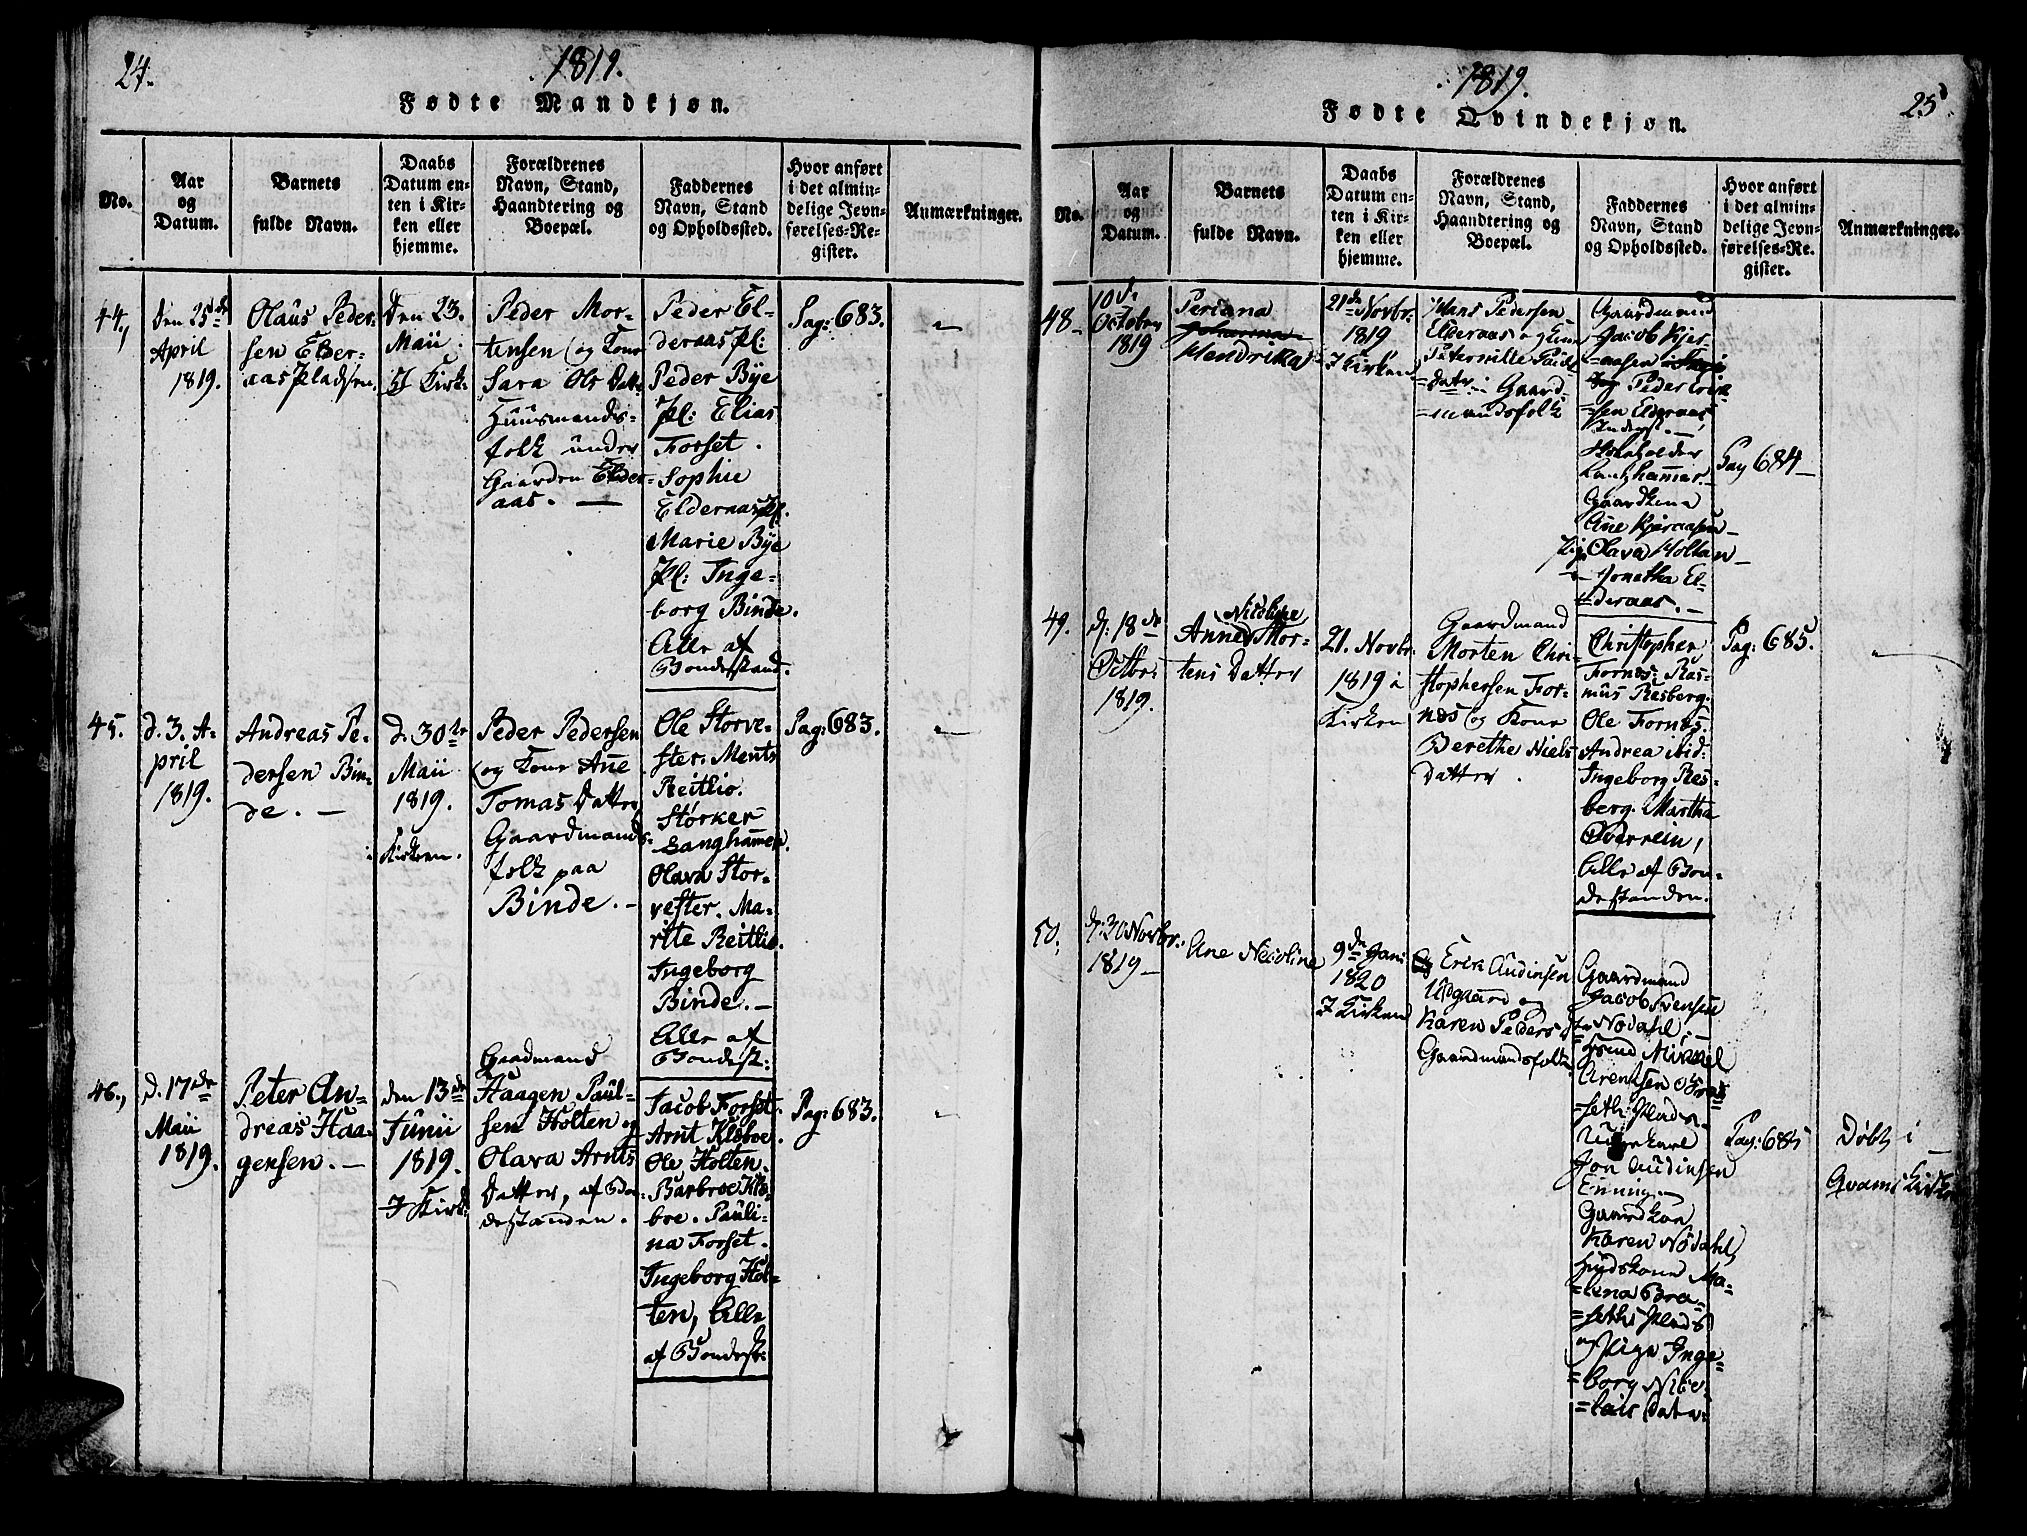 24.
1819.
Fødte Mandkjøn.
No.
Aar
og
Datum.
Barnets
fulde Navn.
Daabs
Datum en-
ten i Kir-
ken eller
hjemme.
Forældrenes
Navn, Stand,
Haandtering og
Boepæl.
Faddernes
Navn, Stand
og Opholdssted.
Hvor anført
i det almin-
delige Jevn-
førelses-Re-
gister.
Anmærkninger.
44.,
Den 25de
April
1819.
Olaus Peder-
sen Elder-
aasPladsen.
Den 23.
Maii.
I Kirk:
Peder Mor-
tensen og Kone
Sara Ols Datt:
Huusmands-
folk under
Gaarden Elder-
aas. —
Peder El-
deraaspl:
Peder Bye
pl: Elias
Forset.
Sophie
Elderaaspl.
Marie Bye
pl: Inge-
borg Binde.
Alle af
Bondestand.
Pag: 683.
—
45.
d. 3. A-
pril
1819.
Andreas Pe-
dersen Bin-
de. —
d. 30te
Maii
1819.
i Kirken.
Peder Pedersen
og Kone Ane
Tomas Datter
Gaardmands-
folk paa
Binde. —
Ole Storve-
fter. Ments
Reitlio.
Størker
Langhammer.
Olava Stor-
vefter. Ma-
rite Reitlio.
Ingeborg
Binde. —
Alle af
Bondest:
Pag: 683.
—
46.,
d. 17de
Maii
1819.
Peter An-
dreas Haa-
gensen. —
den 13de
Junii
1819.
I Kirk:
Gaadmand
Haagen Paul-
sen Holten og
Olava Arnts
Datter, af Bon-
destanden.
Jacob Forset.
Arnt Kleboe.
Ole Holten.
Barbroe Kle-
boe. Pauli-
na Forset.
Ingeborg Hol-
ten, Alle
af Bondest:
Pag: 683.
-
1819.
25.
Fødte Qvindekjøn.
No.
Aar
og
Datum.
Barnets
fulde Navn.
Daabs
Datum en-
ten i Kir-
ken eller
hjemme.
Forældrenes
Navn, Stand,
Haandtering og
Boepæl.
Faddernes
Navn, Stand
og Opholdssted.
Hvor anført
i det almin-
delige Jevn-
førelses-Re-
gister.
Anmærkninger.
48-
10de
October
1819
Periana
Johanna
Hendrika
21de Novbr.
1819
I Kirken
Hans Pedersen
Elderaas og
Gaard-
=mandsfolk
Gaardmænd
Jacob Kjer-
=aasen
Peder Erik-
=sen Elderaas
Langhammer
Gaardkone
Ane Kjeraasen
Pig. Olava Holtan
Jonetha El-
=deraas. —
Pag 684-
49.
d: 18de
Octbr.
1819.
Nicoline
Anne Mor-
tens Datter
21. Novbr.
1819 i
Kirken
Gaardmand
Morten Chri-
stophersen For-
nes og Kone
Berethe Niels
Datter.
Christopher
Fornes. Ras-
mus Resberg.
Ole Fornes.
Andrea ibid.
Ingeborg Res-
berg. Martha
Overrein,
Alle af Bon-
destanden.
Pag: 685.
—
50.
d: 30 Novbr.
1819-
Ane Nicoline
9de Jani
1820
I Kirken
Erik Audinsen
Opgaard og
Karen Peders d
Gaardmandsfolk
Gaardmand
Jacob Svensen
Nødahl;
Svend Mikkel
Arentsen
=seth:Plads.
Ungkarl
Jon Audinsen
Einning
Gaardkone
Karen Nødahl,
Huuskone Ma-
=lena Bra-
=seths Plads
og Pige Inge-
=borg Nico-
=lais Dater
Pag: 685
Døbt i
Qvams Kirke